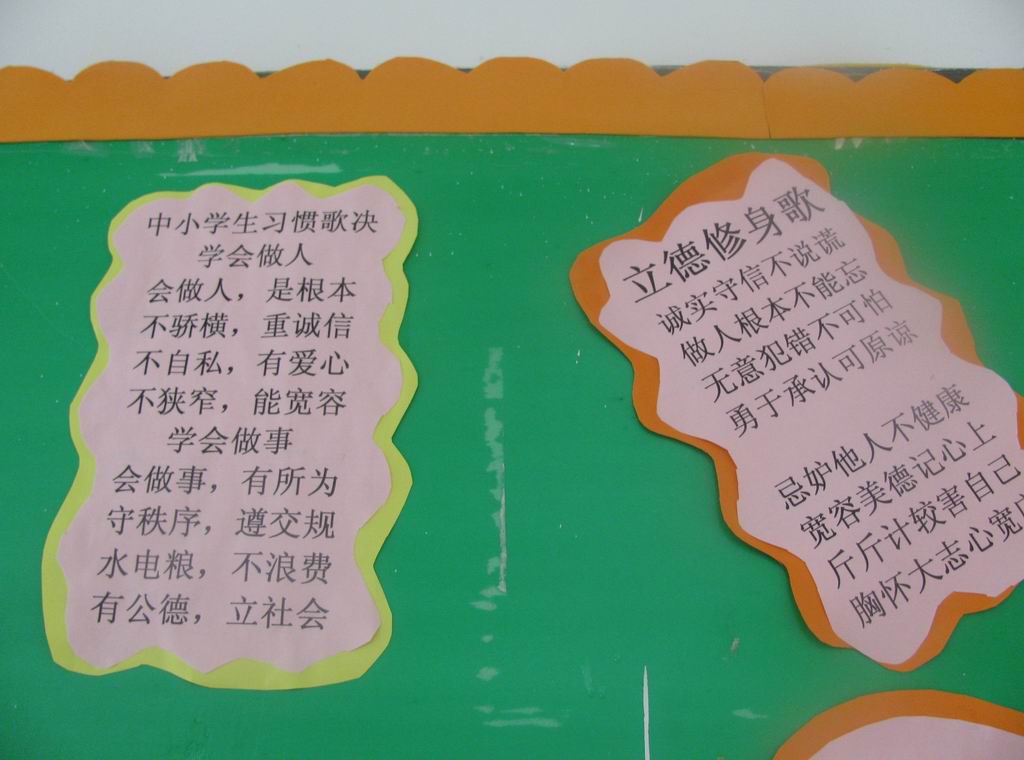 中小学生习惯歌决
学会做人
会做人，是根本
不骄横，重诚信
不自私，有爱心
不狭窄，能宽容
学会做事
会做事，有所为
守秩序，遵交规
水电粮，不浪费
有公德，立社会
立德修身歌
诚实守信不说谎
做人根本不能忘
无意犯错不可怕
勇于承认可原谅
忌妒他人不健康
宽容美德记心上
斤斤计较害自己
胸怀大志心宽